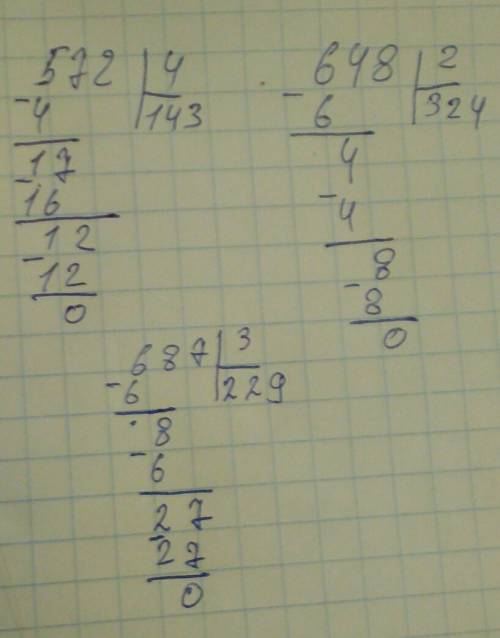 572 | 4
-4 | 143
17
-16
12
-12
0
648 | 2
-6 | 324
4
-4
8
-8
0
687 | 3
-6 | 229
8
-6
27
-27
0